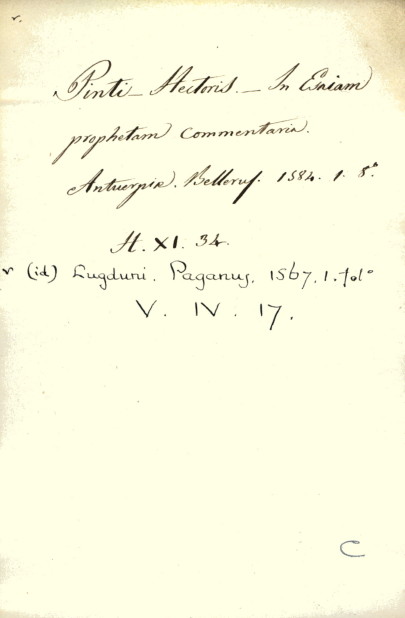 v.
Pinti - Hectoris. - In Esaiam
prophetam commentaria.
Antuerpiæ. Belleruſ. 1584. 1. 8.°
H. XI. 34.
v (id) Lugduni. Paganuſ. 1567. 1. fol°
V. IV. 17.
C